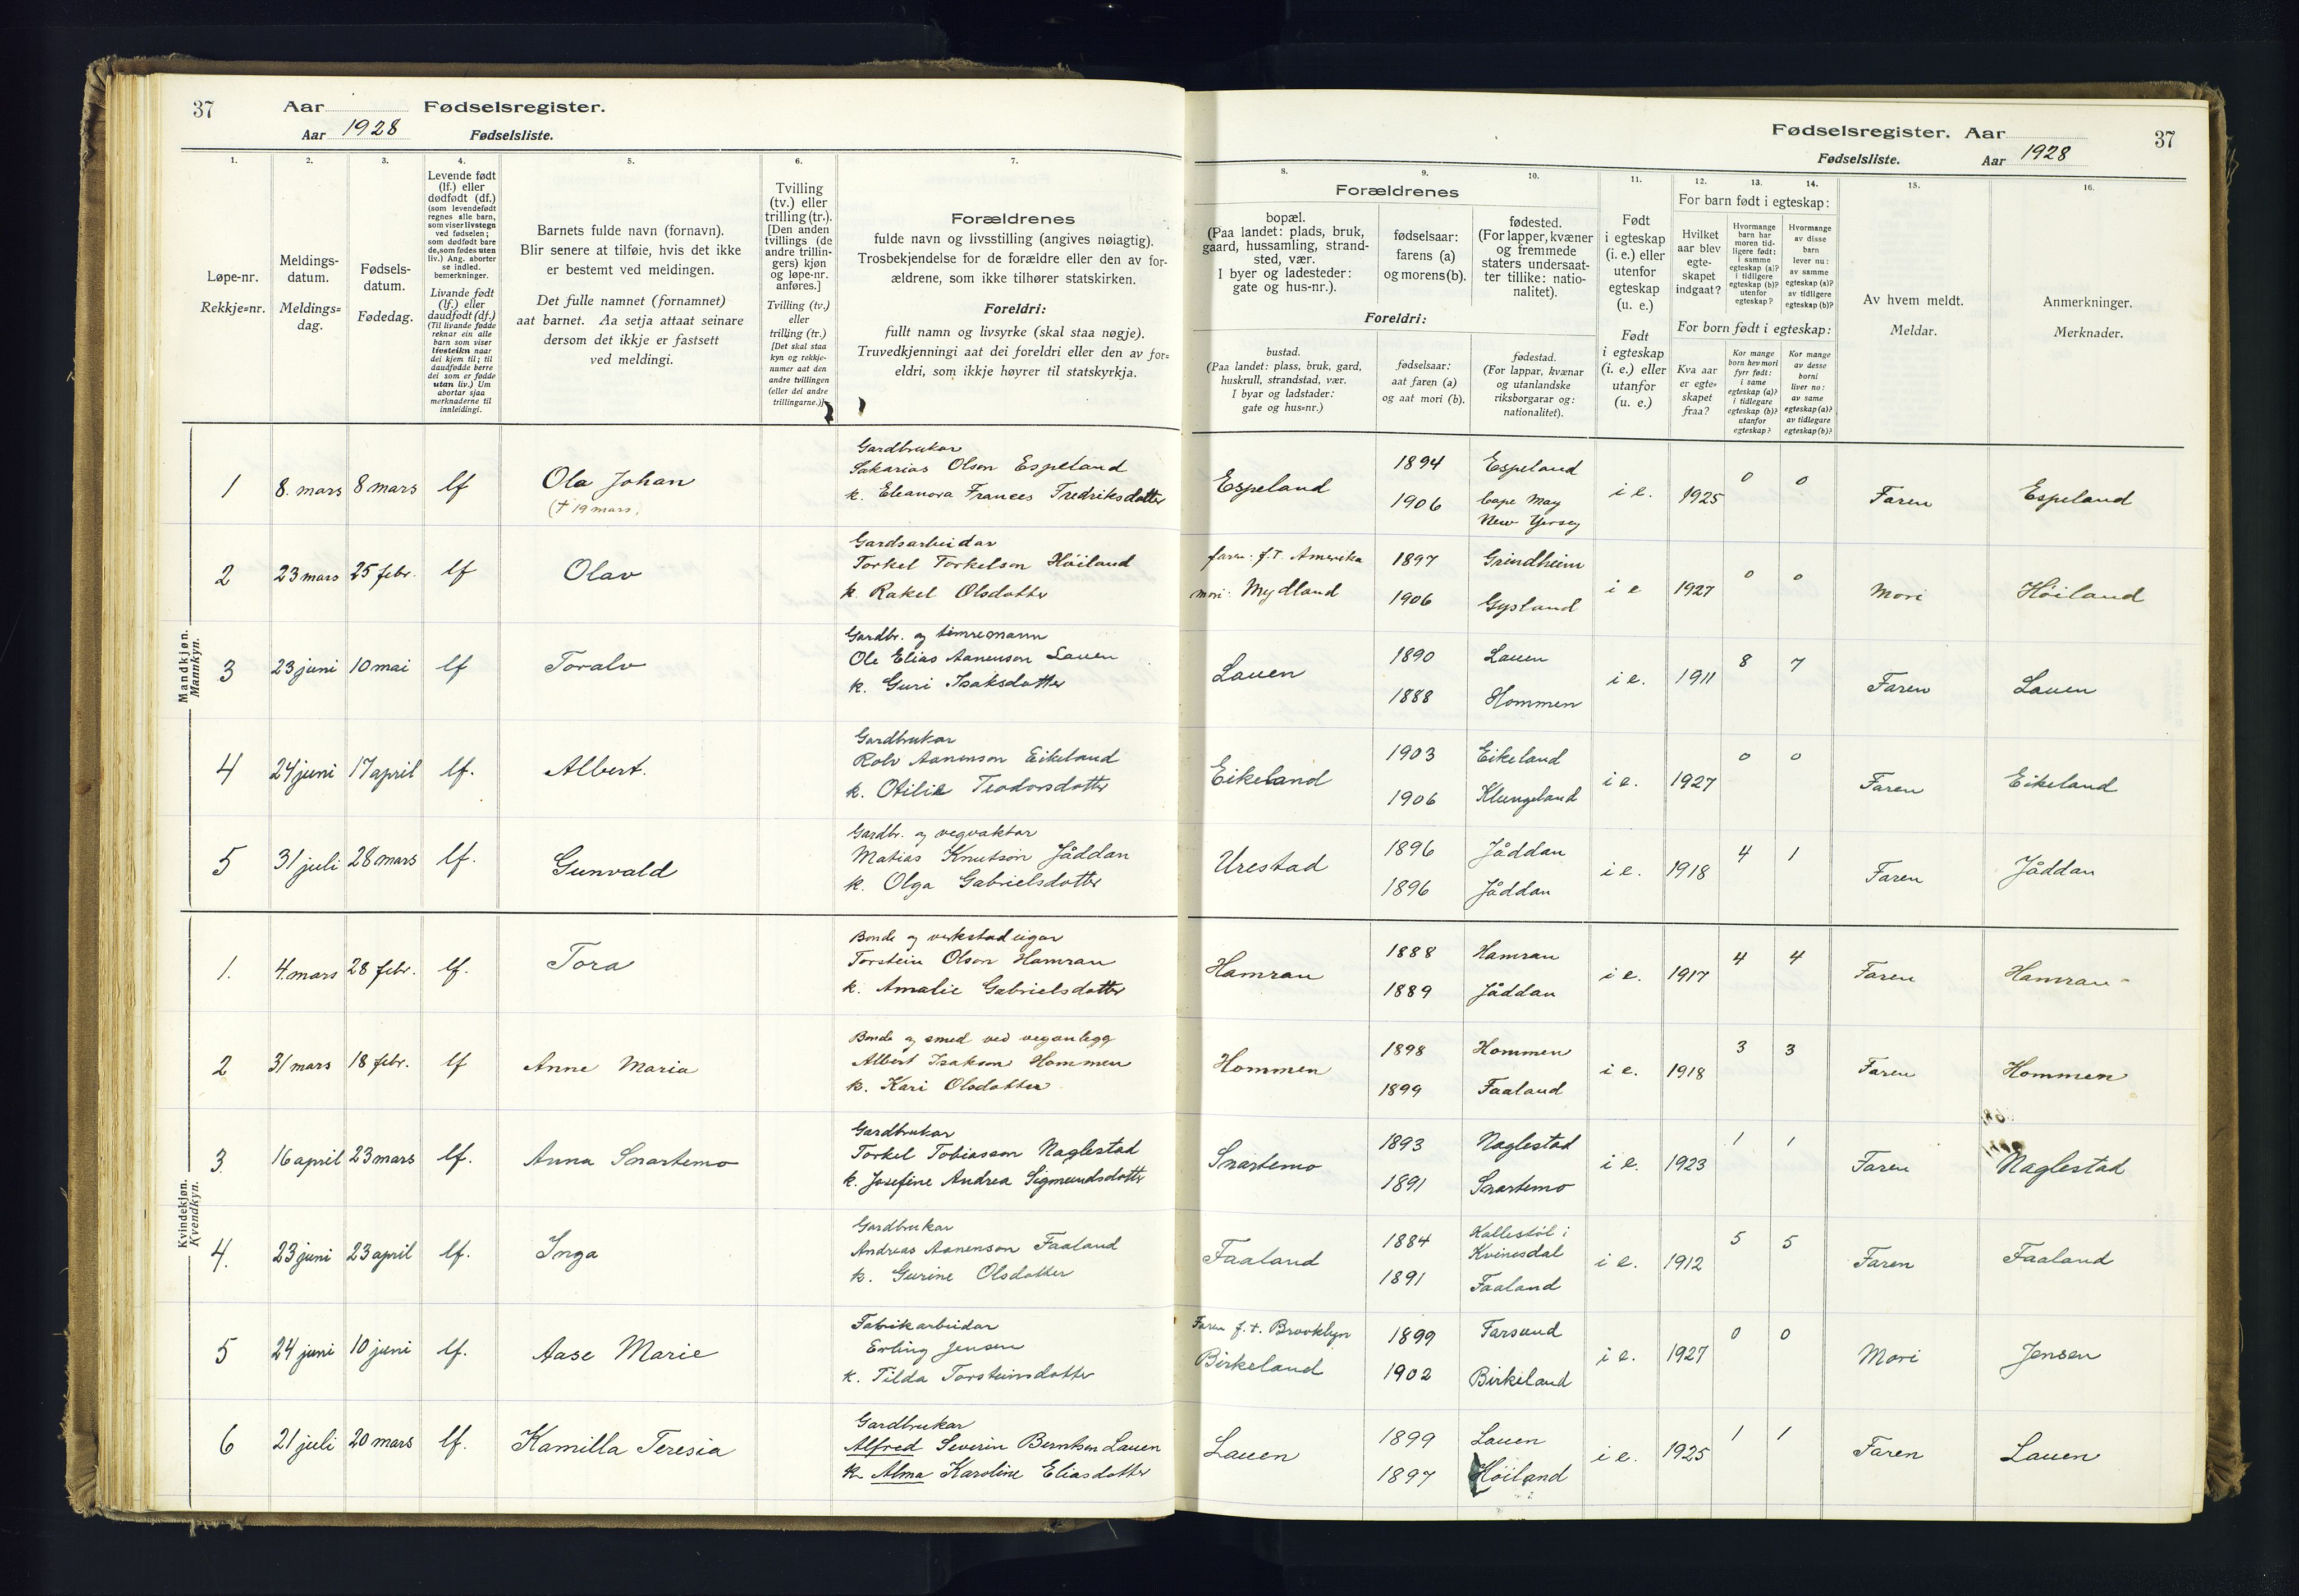 37
Aar Fødselsregister.
Aar 1928 Fødselsliste.
Fødselsregister. Aar
37
Fødselsliste. Aar 1928
1.
2.
3.
4.
5.
6.
7.
8.
9.
10.
11.
12.
13.
14.
15.
16.
Løpe-nr.
Rekkje=nr.
Meldings-
datum.
Meldings=
dag.
Fødsels-
datum.
Fødedag.
Levende født
(lf.) eller
dødfødt (df.)
(som levendefødt
regnes alle barn,
som viser livstegn
ved fødselen;
som dødfødt bare
de, som fødes uten
liv.) Ang. aborter
se indled.
bemerkninger.
Livande født
(lf.) eller
daudfødt (df.)
(Til livande fødde
reknar ein alle
barn som viser
livsteikn naar
dei kjem til; til
daudfødde berre
dei som er fødde
utan liv.) Um
abortar sjaa
merknaderne til
innleidingi.
Barnets fulde navn (fornavn).
Blir senere at tilføie, hvis det ikke
er bestemt ved meldingen.
Det fulle namnet (fornamnet)
aat barnet. Aa setja attaat seinare
dersom det ikkje er fastsett
ved meldingi.
Tvilling
(tv.) eller
trilling (tr.).
[Den anden
tvillings (de
andre trillin-
gers) kjøn
og løpe-nr.
anføres.]
Tvilling (tv.)
eller
trilling (tr.)
[Det skal staa
kyn og rekkje-
numer aat den
andre tvillingen
(eller dei andre
trillingarne.)]
Forældrenes
fulde navn og livsstilling (angives nøiagtig).
Trosbekjendelse for de forældre eller den av for-
ældrene, som ikke tilhører statskirken.
Foreldri:
fullt namn og livsyrke (skal staa nøgje).
Truvedkjenningi aat dei foreldri eller den av for=
eldri, som ikkje høyrer til statskyrkja.
Forældrenes
bopæl.
(Paa landet: plads, bruk,
gaard, hussamling, strand-
sted, vær.
I byer og ladesteder:
gate og hus-nr.).
fødselsaar:
farens (a)
og morens (b).
fødested.
(For lapper, kvæner
og fremmede
staters undersaat-
ter tillike: natio-
nalitet).
Foreldri:
bustad.
(Paa landet: plass, bruk, gard,
huskrull, strandstad, vær.
I byar og ladstader:
gate og hus=nr.)
fødselsaar:
aat faren (a)
og aat mori (b).
fødestad.
(For lappar, kvænar
og utanlandske
riksborgarar og:
nationalitet).
Født
i egteskap
(i. e.) eller
utenfor
egteskap
(u. e.)
Født
i egteskap
(i. e.) eller
utanfor
(u. e.)
For barn født i egteskap:
Hvilket
aar blev
egte-
skapet
indgaat?
Hvormange
barn har
moren tid-
ligere født:
i samme
egteskap (a)?
i tidligere
egteskap (b)?
utenfor
egteskap?
Hvormange
av disse
barn
lever nu:
av samme
egteskap (a)?
av tidligere
egteskap (b)?
For born født i egteskap:
Kva aar
er egte=
skapet
fraa?
Kor mange
born hev mori
fyrr født:
i same
egteskap (a)?
i tidlegare
egteskap (b)?
utanfor
egteskap?
Kor mange
av desse
borni
liver no:
av same
egteskap (a)?
av tidlegare
egteskap (b)?
Av hvem meldt.
Meldar.
Anmerkninger.
Merknader.
Mandkjøn.
Mannkyn.
1 8. mars 8 mars lf Ola Johan
(† 19 mars)
Gardbrukar
Sakarias Olsen Espeland
k. Eleanora Frances Fredriksdotter
Espeland
1894 Espeland
1906 Cape May
New Yersey
i e. 1925 0 0 Faren Espeland
2 23 mars 25 febr. lf Olav
Gardsarbeidar
Torkel Torkelson Høiland
k. Rakel Olsdotter
faren: f.T. Amerika
mori: Mydland
1897 Grindheim
1906 Gysland
i e 1927 0 0 Mori Høiland
3 23 juni 10 mai lf Toralv
Gardbr. og timremann
Ole Elias Aanenson Lauen
k. Guri Isaksdotter
Lauen
1890 Lauen
1888 Hommen
i e. 1911 8 7 Faren Lauen
4 24 juni 17 april lf. Albert.
Gardbrukar
Rolv Aanenson Eikeland
k. Otilie Teodorsdotter
Eikeland
1903 Eikeland
1906 Klungeland
i e. 1927 0 0 Faren Eikeland
5 31 juli 28 mars lf. Gunvald
Gardbr. og vegvaktar
Matias Knutson Jåddan
k. Olga Gabrielsdotter
Urestad
1896 Jåddan
1896 Jåddan
i e. 1918 4 1 Faren Jåddan
Kvindekjøn.
Kvendkyn.
1. 4. mars 28 febr. lf. Tora
Bonde og verkstadeigar
Torstein Olson Hamran
k. Amalie Gabrielsdotter
Hamran
1888 Hamran
1889 Jåddan
i e. 1917 4 4 Faren Hamran
2 31 mars 18 febr. lf Anne Maria
Bonde og smed ved veganlegg
Albert Isakson Hommen
k. Kari Olsdotter
Hommen
1898 Hommen
1899 Faaland
i e. 1918 3 3 Faren Hommen
3. 16 april 23 mars lf. Anna Snartemo
Gardbrukar
Torkel Tobiasson Naglestad
k. Josefine Andrea Sigmundsdotter
Snartemo
1893 Naglestad
1891 Snartemo
i e. 1923 1 1 Faren Naglestad
4. 23 juni 23 april lf. Inga
Gardbrukar
Andreas Aanenson Faaland
k. Gurine Olsdotter
Faaland
1884 Kallestøl i
Kvinesdal
1891 Faaland
i e. 1912 5 5 Faren Faaland
5 24 juni 10 juni lf. Aase Marie
Fabrikarbeidar
Erling Jensen
k. Tilda Torsteinsdotter
Faren f.t. Brooklyn
Birkeland
1899 Farsund
1902 Birkeland
i e. 1927 0 0 Mori Jensen
6 21 juli 20 mars lf. Kamilla Teresia
Gardbrukar
Alfred Severin Berntsen Lauen
k. Alma Karoline Eliasdotter
Lauen
1899 Lauen
1897 Høiland
i e. 1925 1 1 Faren Lauen